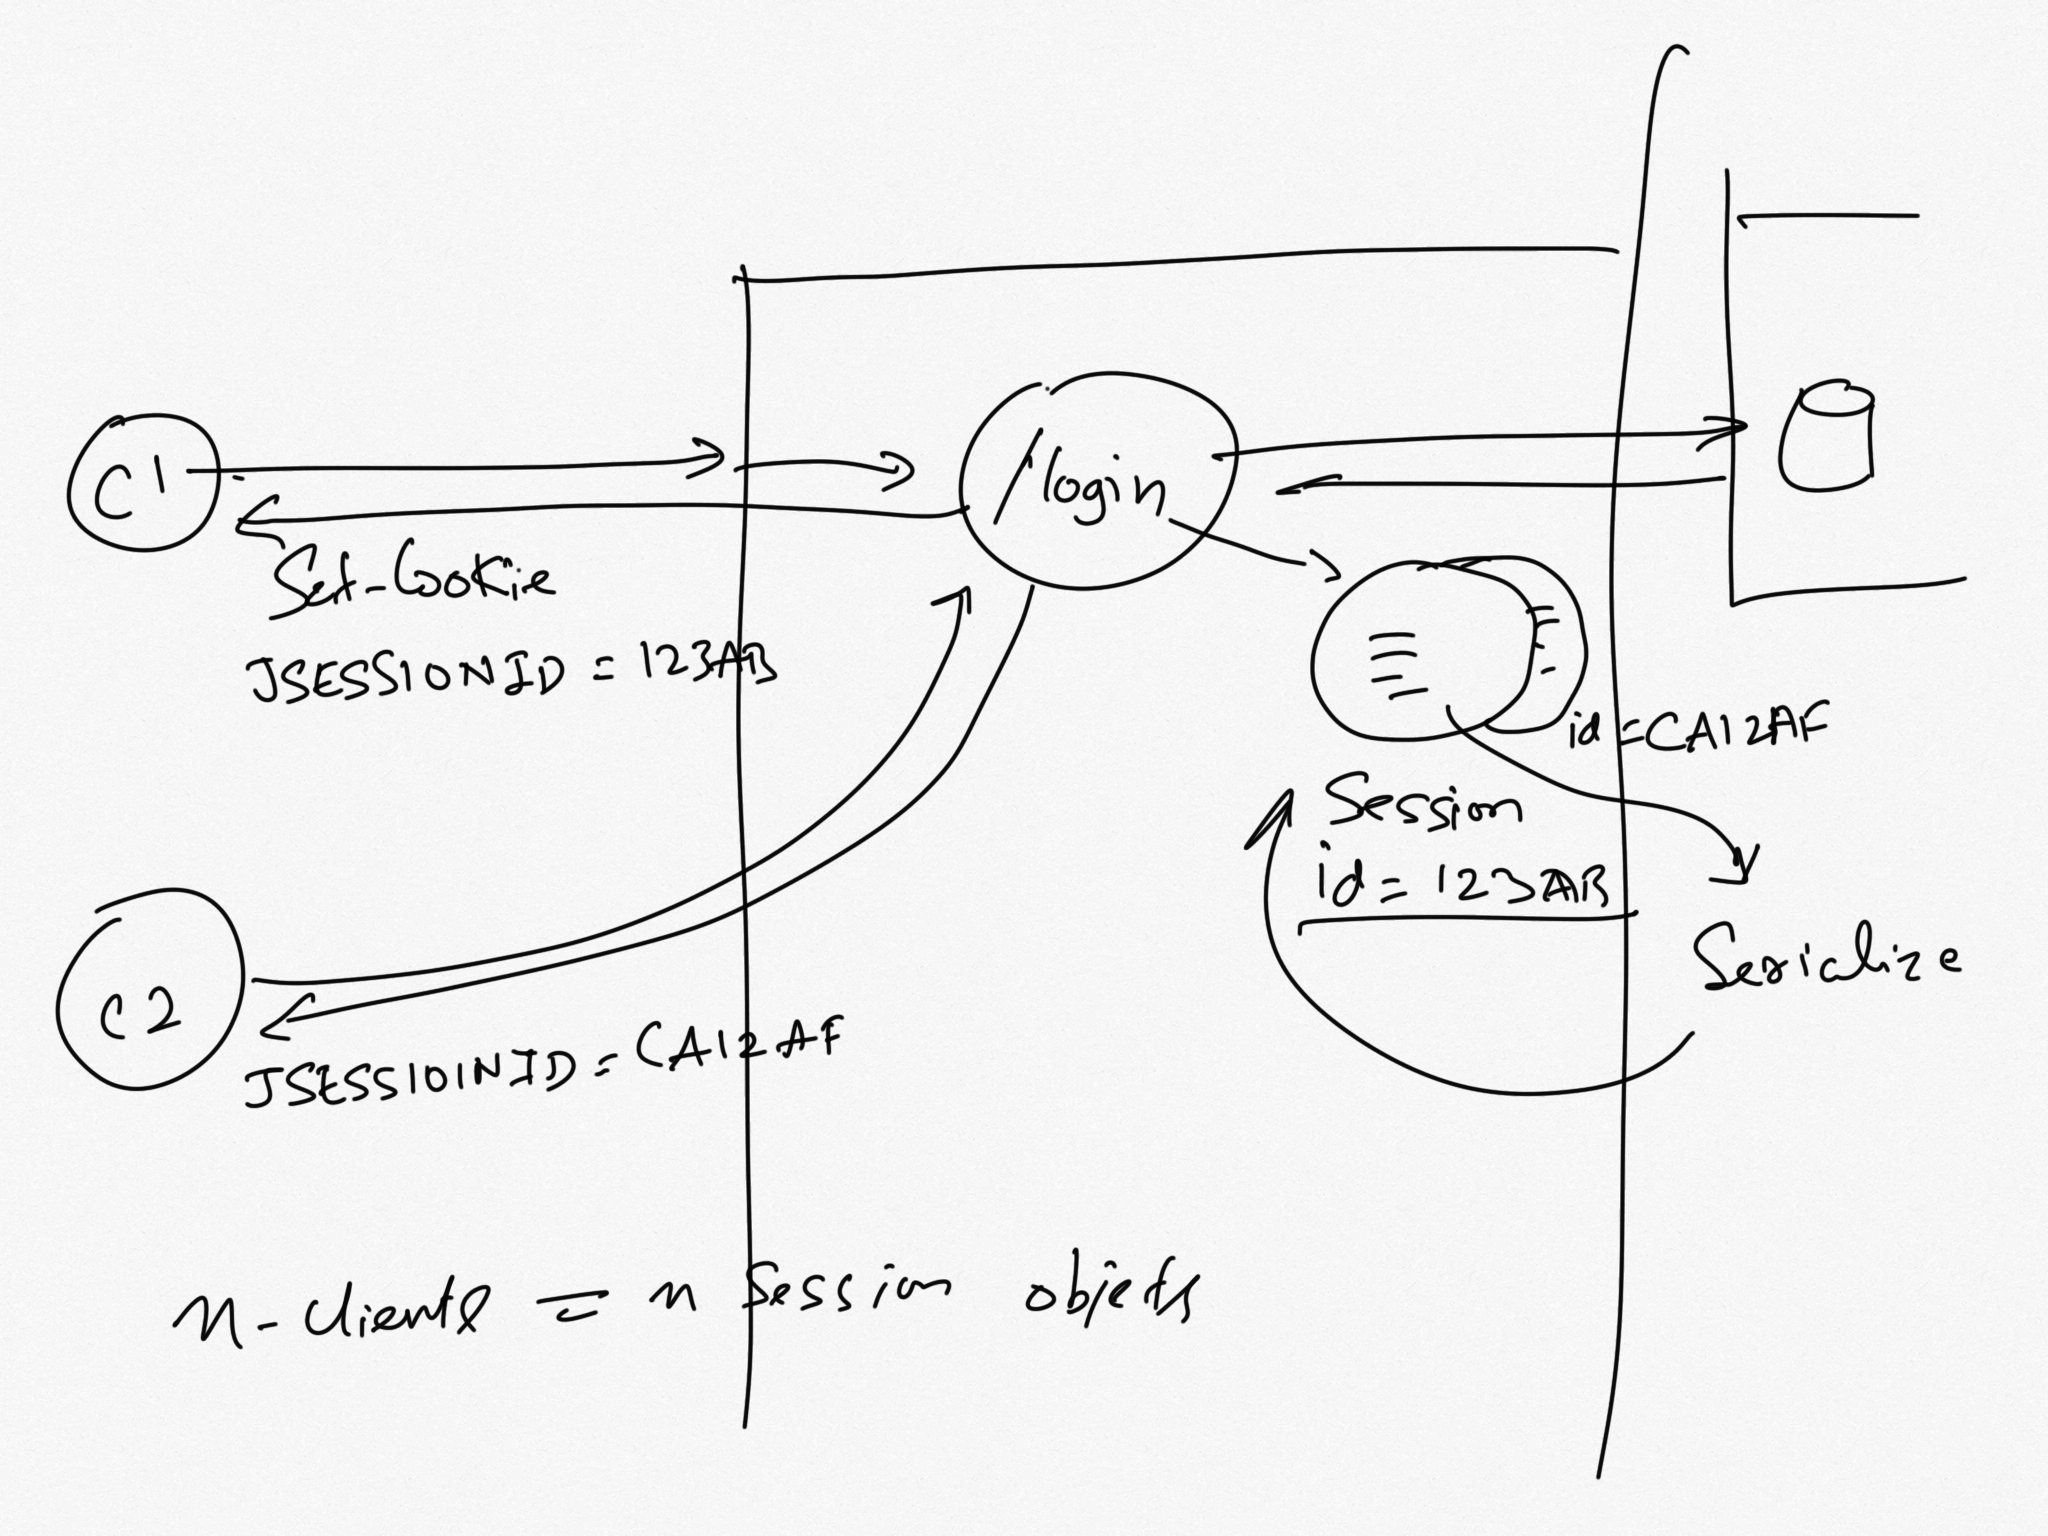 C1
/login
Set-Cookie
JSESSIONID = 123AB
id = CA12AF
Session
id = 123AB
Serialize
C2
JSESSIOINID = CA12AF
n - clients = n Session objects